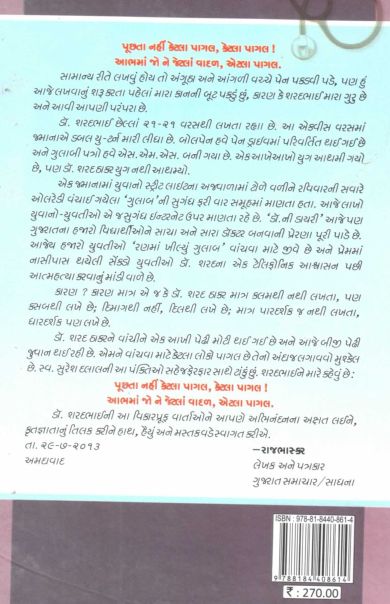 પૂછતા નહીં કેટલા પાગલ, કેટલા પાગલ !
આભમાં જો ને જેટલાં વાદળ, એટલા પાગલ.
સામાન્ય રીતે લખવું હોય તો અંગૂઠા અને આંગળી વચ્ચે પેન પકડવી પડે, પણ હું
આજે લખવાનું શરૂ કરતા પહેલાં મારા કાનની બૂટ પકડું છું, કારણ કે શરદભાઈ મારા ગુરુ છે
અને આવી આપણી પરંપરા છે.
ડૉ. શરદભાઈ છેલ્લાં ૨૧-૨૧ વરસથી લખતા રહ્યા છે. આ એકવીસ વરસમાં
જમાનાએ ડબલ યુ-ટર્ન મારી લીધા છે. બોલપેન હવે પેન ડ્રાઈવમાં પરિવર્તિત થઈ ગઈ છે
અને ગુલાબી પત્રો હવે એસ.એમ.એસ. બની ગયા છે. એક આખેઆખો યુગ આથમી ગયો
છે, પણ ડૉ. શરદ ઠાકર યુગ નથી આથમ્યો.
એક જમાનામાં યુવાનો સ્ટ્રીટ લાઈટના અજવાળામાં ટોળે વળીને રવિવારની સવારે
ઓલરેડી વંચાઈ ગયેલા ‘ગુલાબ’ની સુગંધ ફરી વાર સમૂહમાં માણતા હતા. આજે લાખો
યુવાનો-યુવતીઓ એ જ સુગંધ ઈન્ટરનેટ ઉપર માણતા રહે છે. ‘ડૉ.ની ડાયરી’ આજે પણ
ગુજરાતના હજારો વિદ્યાર્થીઓને સાચા અને સારા ડૉક્ટર બનવાની પ્રેરણા પૂરી પાડે છે.
આજેય હજારો યુવતીઓ ‘રણમાં ખીલ્યું ગુલાબ’ વાંચવા માટે જીવે છે અને પ્રેમમાં
નાસીપાસ થયેલી સેંકડો યુવતીઓ ડૉ. શરદના એક ટેલિફોનિક આશ્વાસન પછી
આત્મહત્યા કરવાનું માંડી વાળે છે.
કારણ ? કારણ માત્ર એ જ કે ડૉ. શરદ ઠાકર માત્ર કલમથી નથી લખતા, પણ
કસબથી લખે છે; દિમાગથી નહીં, દિલથી લખે છે; માત્ર પારદર્શક જ નથી લખતા,
ધારદર્શક પણ લખે છે.
ડૉ. શરદ ઠાકરને વાંચીને એક આખી પેઢી મોટી થઈ ગઈ છે અને આજે બીજી પેઢી
જુવાન થઈ રહી છે. એમને વાંચવા માટે કેટલા લોકો પાગલ છે તેનો અંદાજ લગાવવો મુશ્કેલ
છે. સ્વ. સુરેશ દલાલની આ પંક્તિઓ સહેજ ફેરફાર સાથે ટાંકું છું. શરદભાઈને મારે કહેવું છે :
પૂછતા નહીં કેટલા પાગલ, કેટલા પાગલ !
આભમાં જો ને જેટલાં વાદળ, એટલા પાગલ.
ડૉ. શરદભાઈની આ વિકારપ્રૂફ વાર્તાઓને આપણે અભિનંદનના અક્ષત લઈને,
કૃતજ્ઞતાનું તિલક કરીને હાથ, હૈયું અને મસ્તક વડે સ્વાગત કરીએ.
તા. ૨૯-૭-૨૦૧૩
અમદાવાદ
–રાજભાસ્કર
લેખક અને પત્રકાર
ગુજરાત સમાચાર/સાધના
ISBN : 978-81-8440-861-4
9 788184 408614
₹ : 270.00